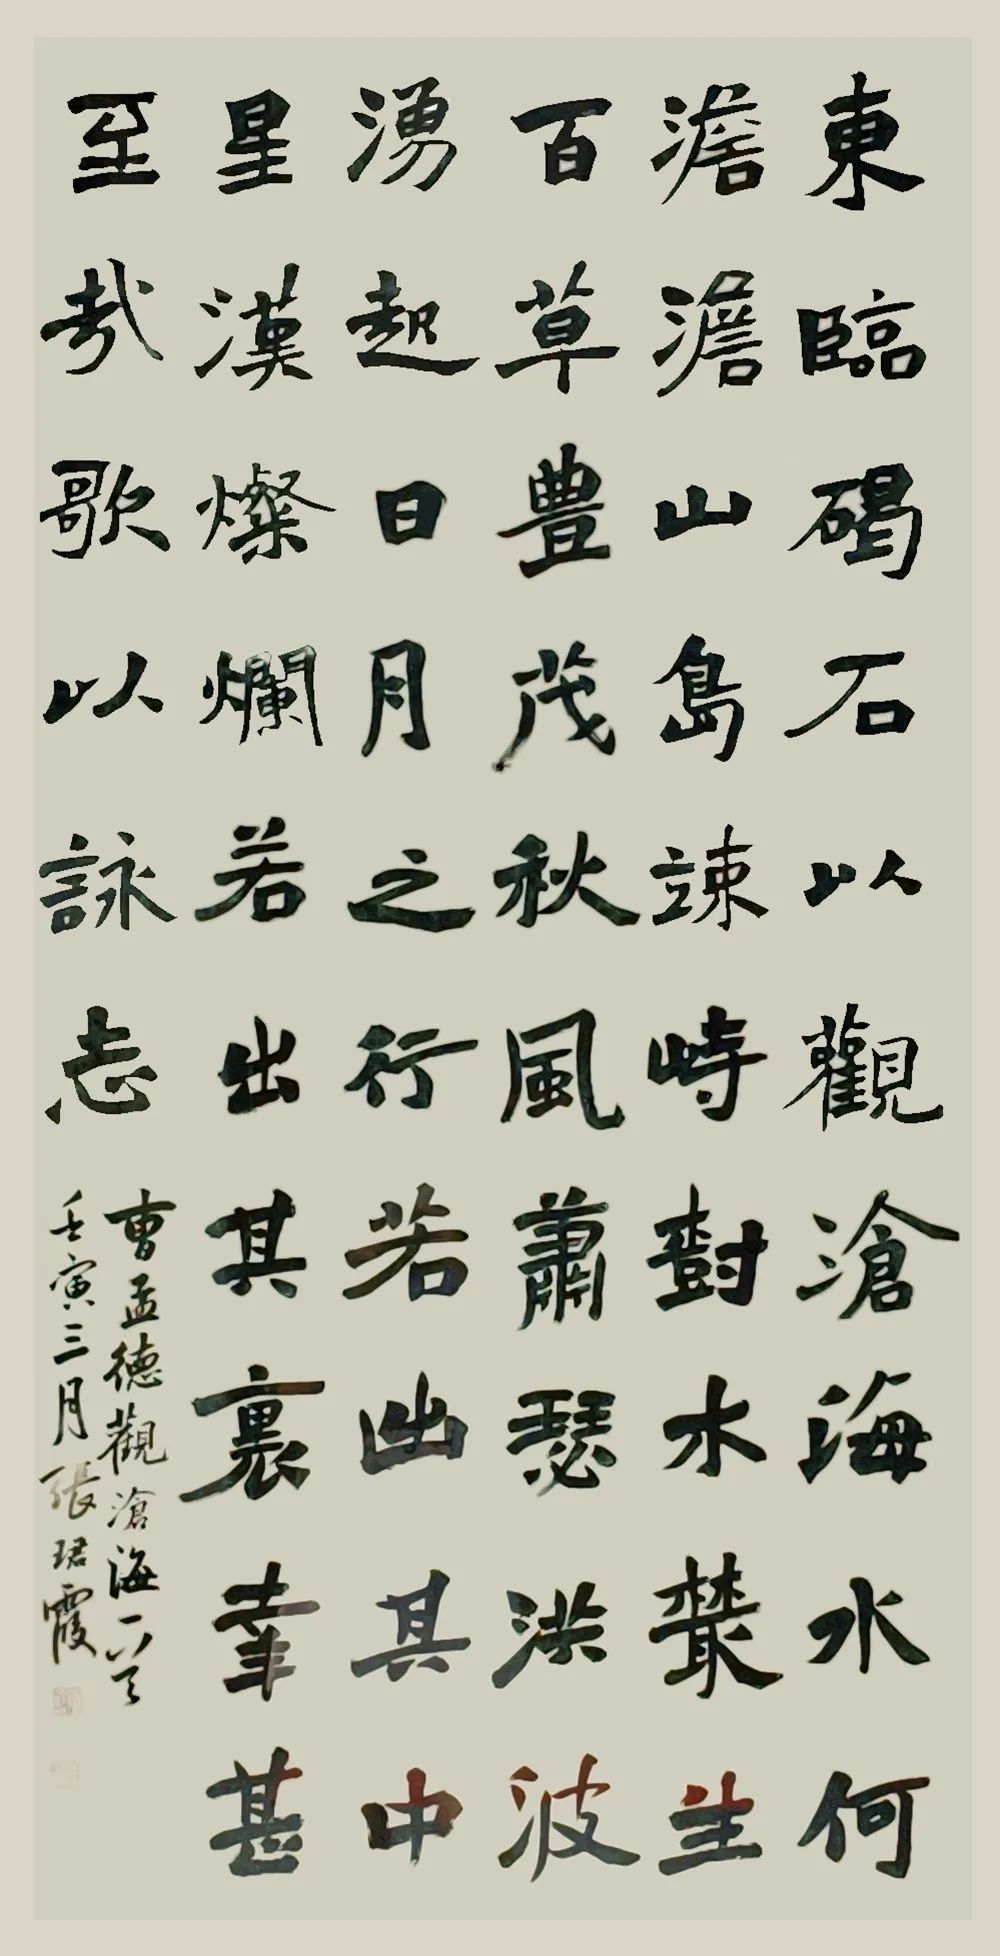 東臨碣石以觀滄海水何
澹澹山島竦峙樹木叢生
百草豊茂秋風蕭瑟洪波
湧起日月之行若出其中
星漢燦爛若出其裏幸甚
至哉歌以詠志
曹孟德觀滄海一首
壬寅三月張珺霞